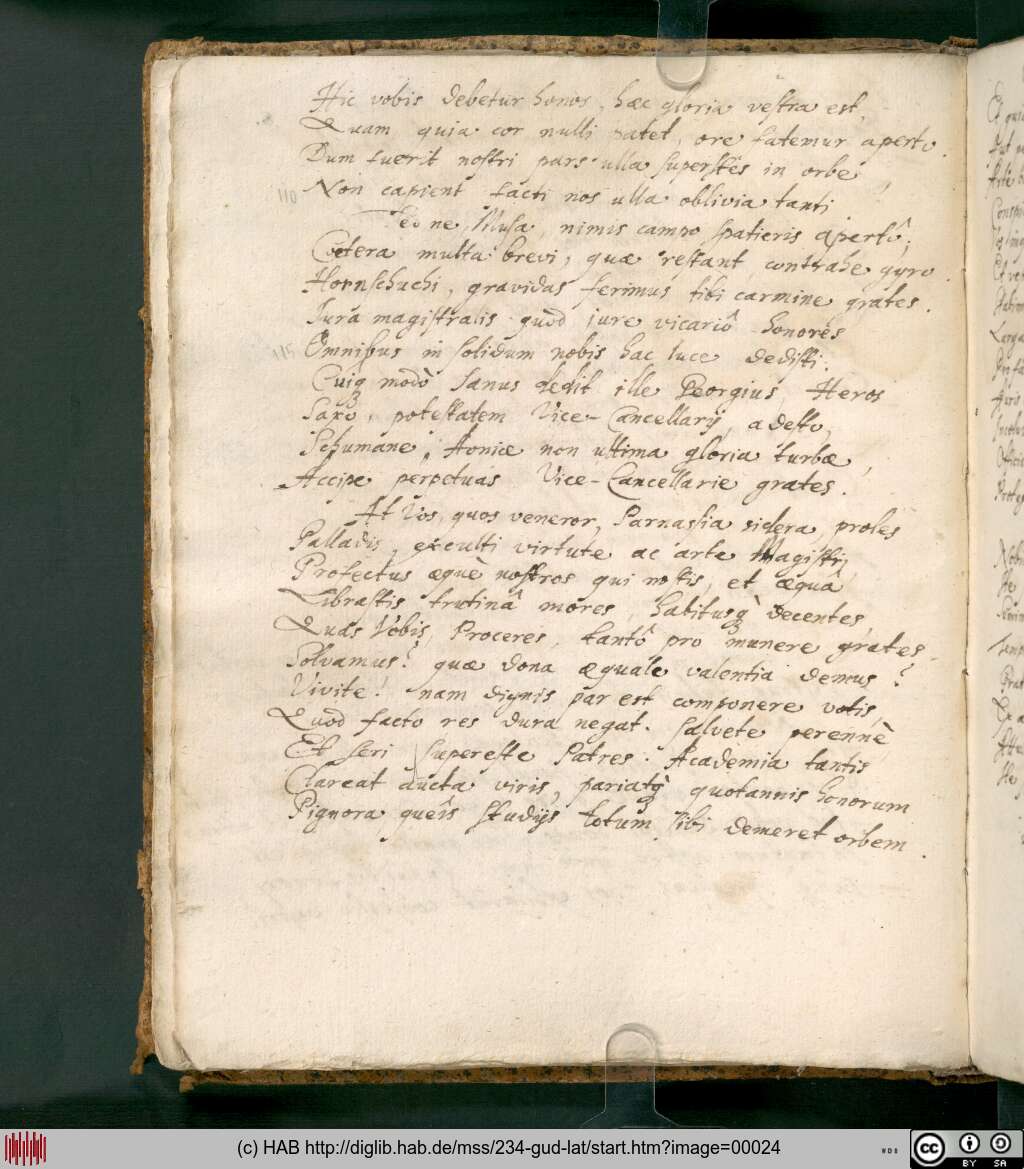 Hic vobis debetur honos, hæc gloria vestra est,
Quam quia cor nulli patet, ore fatemur aperto.
Dum fuerit nostri pars ulla superstes in orbe,
110 Non capient facti nos ulla oblivia tanti
Sed ne Musa, nimis campo spatieris apertô;
Cætera multa brevi, quæ restant contrahe gyro.
Hornschuchi, gravidas ferimus tibi carmine grates.
Jura magistralis quod jure vicariô honores
115 Omnibus in solidum nobis hac luce dedisti.
Cuiq modò Janus dedit ille Georgius, Heros
Saxo, potestatem Vice-Cancellarij, adesto,
Schumane, Aoniæ non ultima gloria turbæ,
Accipe perpetuas Vice-Cancellarie grates.
At Vos, quos veneror, Parnassia sidera, proles
Palladis, exculti virtute ac arte Magistri
Profectus æquè nostros qui nostis, et æquâ
Librastis trutinâ mores, habitusq decentes,
Quas Vobis, Proceres, tantô pro munere grates
Solvamus? quæ dona æquale valentia demus?
Vivite! nam dignis par est componere votis,
Quod facto res dura negat. salvete perennè
Et seri supereste Patres. Academia tantis
Clareat aucta viris, pariatq quotannis honorum
Pignora queîs studijs totum sibi demeret orbem.
(c) HAB http://diglib.hab.de/mss/234-gud-lat/start.htm?image=00024
cc BY SA